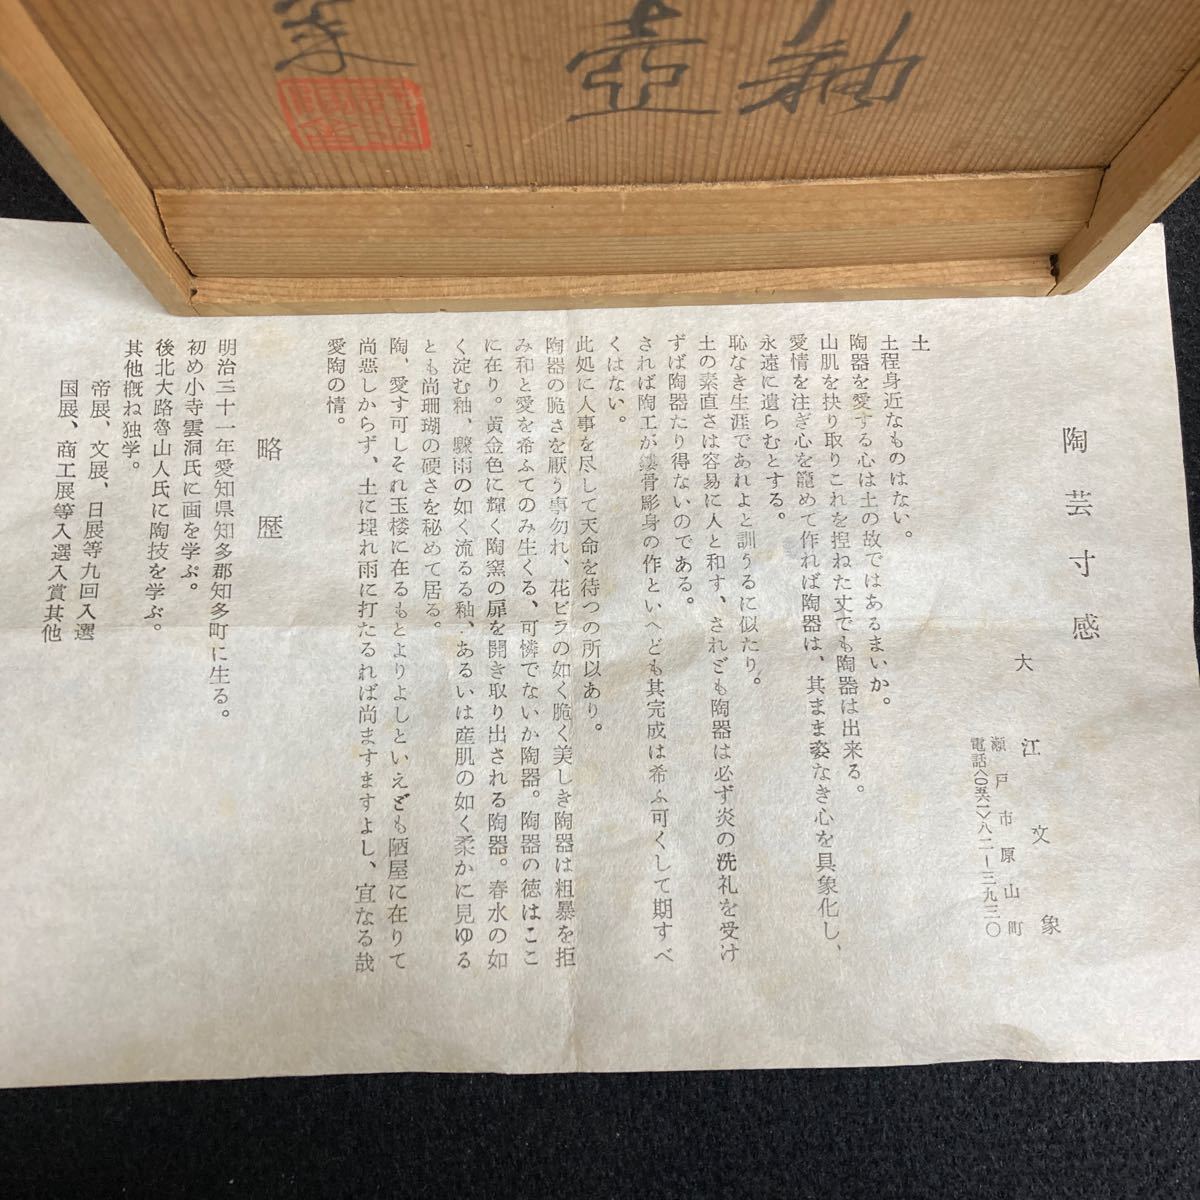 釉
壺
陶芸寸感
大江文象
瀬戸市原山町
電話〈〇五六一〉八二ー三九三〇
土
土程身近なものはない。
陶器を愛する心は土の故ではあるまいか。
山肌を抉り取りこれを捏ねた丈でも陶器は出来る。
愛情を注ぎ心を籠めて作れば陶器は、其まま姿なき心を具象化し、
永遠に遺らむとする。
恥なき生涯であれよと訓うるに似たり。
土の素直さは容易に人と和す、されども陶器は必ず炎の洗礼を受け
ずば陶器たり得ないのである。
されば陶工が鏤骨彫身の作といへども其完成は希ふ可くして期すべ
くはない。
此処に人事を尽して天命を待つの所以あり。
陶器の脆さを厭う事勿れ、花ビラの如く脆く美しき陶器は粗暴を拒
み和と愛を希ふてのみ生くる、可憐でないか陶器。陶器の徳はここ
に在り。黄金色に輝く陶窯の扉を開き取り出される陶器。春水の如
く淀む釉、驟雨の如く流るる釉、あるいは産肌の如く柔かに見ゆる
とも尚珊瑚の硬さを秘めて居る。
陶、愛す可しそれ玉楼に在るもとよりよしといえども陋屋に在りて
尚悪しからず、土に埋れ雨に打たるれば尚ますますよし、宜なる哉
愛陶の情。
略歴
明治三十一年愛知県知多郡知多町に生る。
初め小寺雲洞氏に画を学ぶ。
後北大路魯山人氏に陶技を学ぶ。
其他概ね独学。
帝展、文展、日展等九回入選
国展、商工展等入選入賞其他